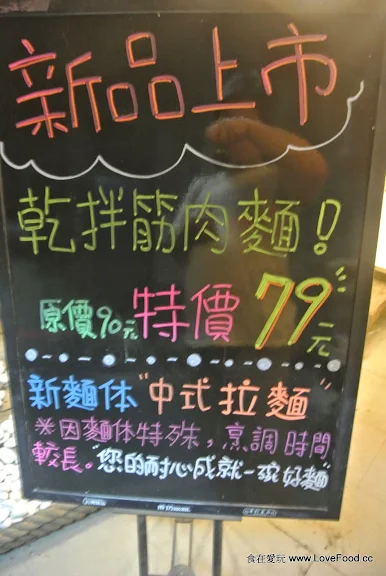 新品上市
乾拌筋肉麵！
原價90元 特價 79元
新麵体“中式拉麵”
※因麵体特殊，烹調時間
較長。“您的耐心成就一碗好麵”
食在愛玩 www.LoveFood.cc